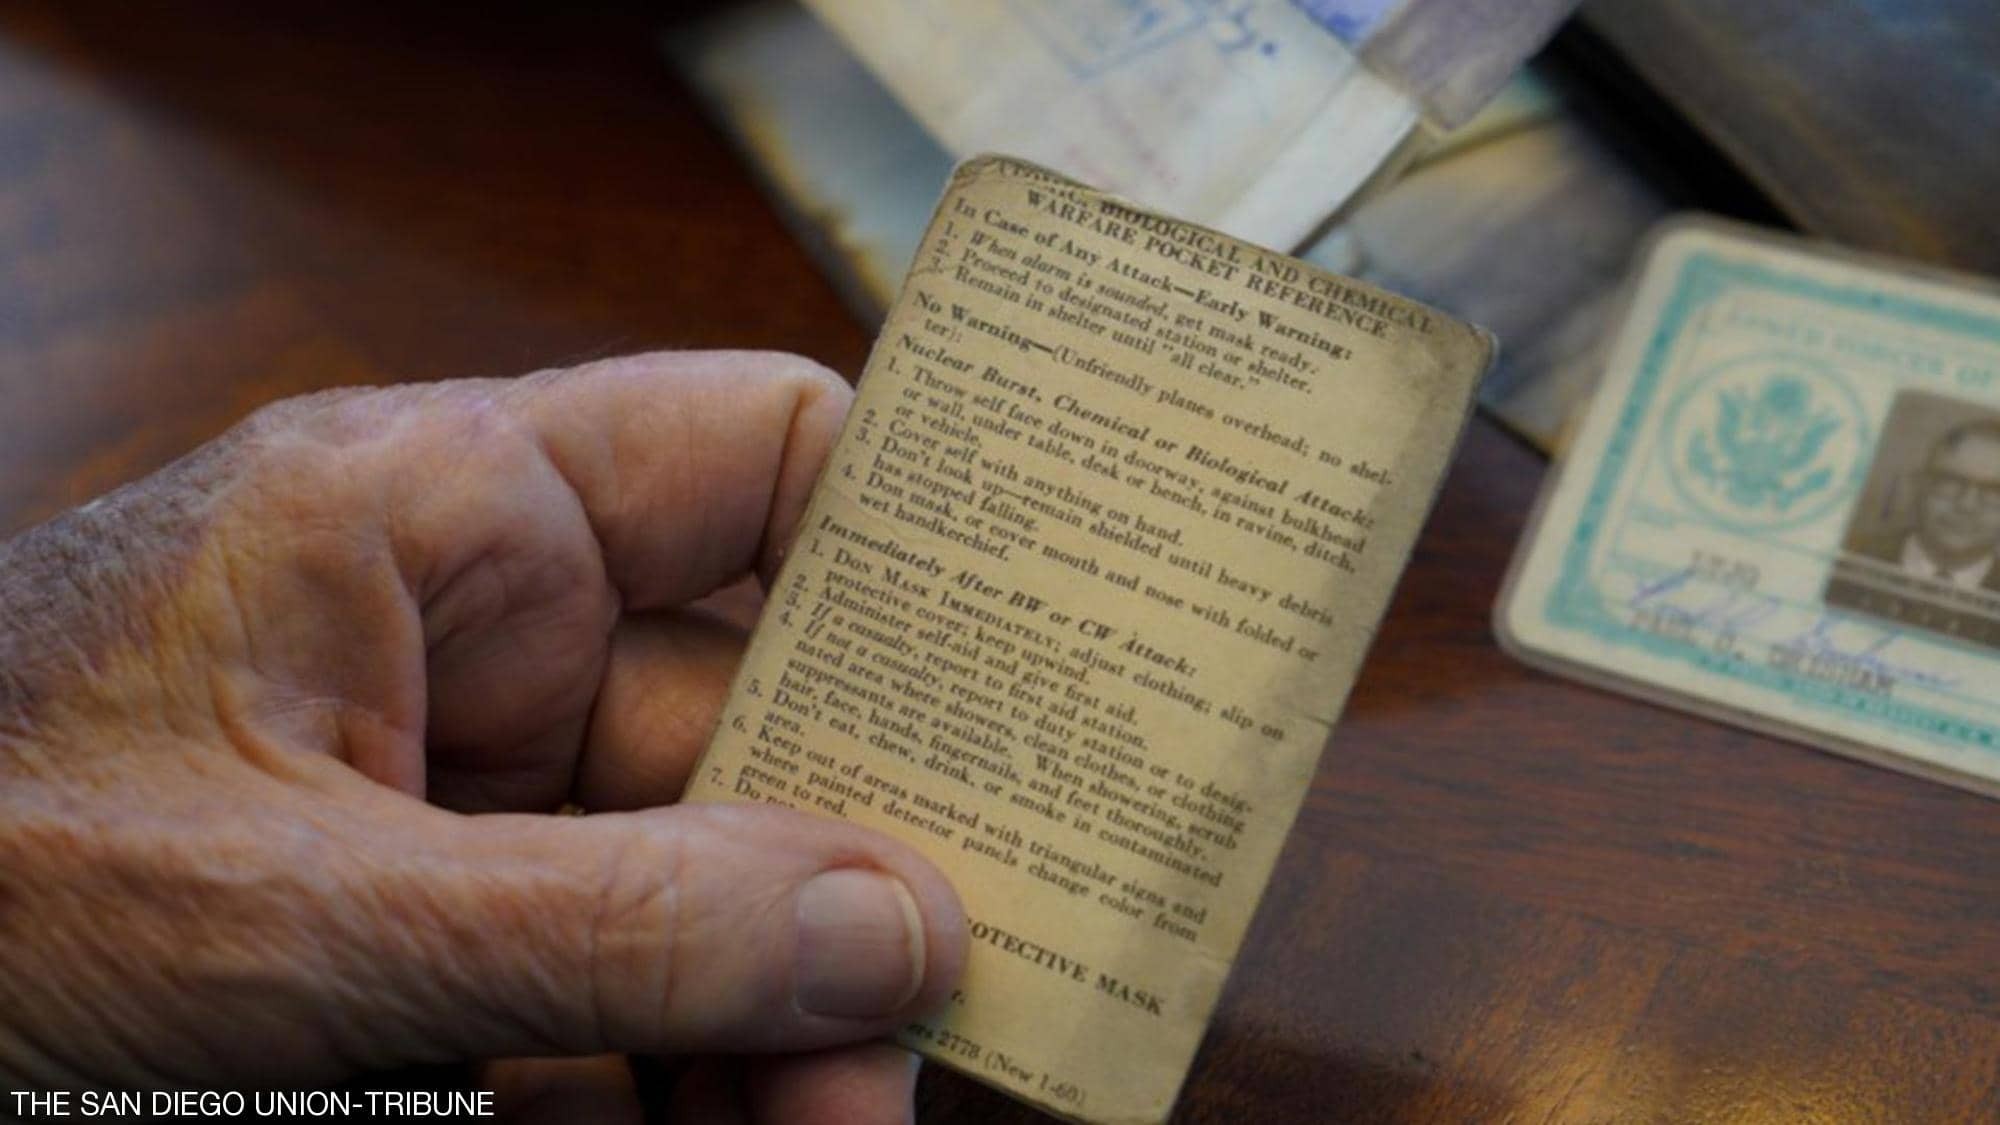 ATOMIC, BIOLOGICAL AND CHEMICAL
WARFARE POCKET REFERENCE
In Case of Any Attack—Early Warning:
1. When alarm is sounded, get mask ready.
2. Proceed to designated station or shelter.
3. Remain in shelter until "all clear."
No Warning—(Unfriendly planes overhead; no shel-
ter):
Nuclear Burst, Chemical or Biological Attack:
1. Throw self face down in doorway, against bulkhead
or wall, under table, desk or bench, in ravine, ditch,
or vehicle.
2. Cover self with anything on hand.
3. Don't look up—remain shielded until heavy debris
has stopped falling.
4. Don mask, or cover mouth and nose with folded or
wet handkerchief.
Immediately After BW or CW Attack:
1. DON MASK IMMEDIATELY; adjust clothing; slip on
protective cover; keep upwind.
2. Administer self-aid and give first aid.
3. If a casualty, report to first aid station.
4. If not a casualty, report to duty station or to desig-
nated area where showers, clean clothes, or clothing
suppressants are available. When showering, scrub
hair, face, hands, fingernails, and feet thoroughly.
5. Don't eat, chew, drink, or smoke in contaminated
area.
6. Keep out of areas marked with triangular signs and
where painted detector panels change color from
green to red.
7. Do not
PROTECTIVE MASK
2778 (New 1-60)
ARMED FORCES OF
THE SAN DIEGO UNION-TRIBUNE